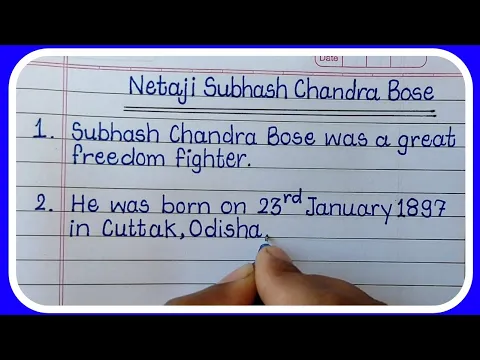 Date
Netaji Subhash Chandra Bose
1. Subhash Chandra Bose was a great
freedom fighter.
2. He was born on 23rd January 1897
in Cuttak, Odisha.